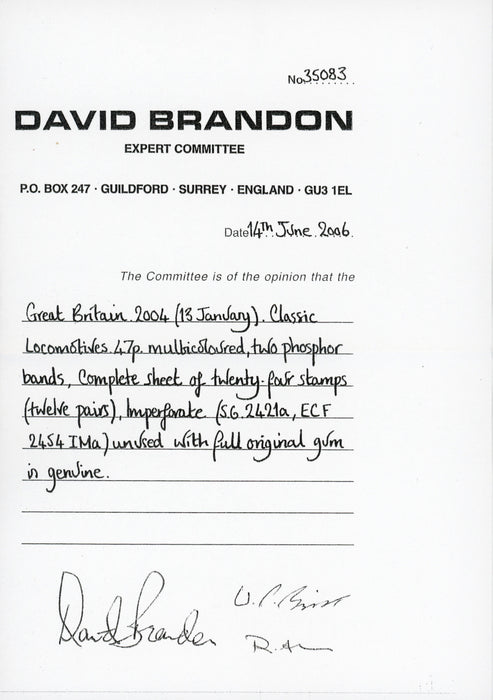 No 35083
DAVID BRANDON
EXPERT COMMITTEE
P.O. BOX 247 · GUILDFORD · SURREY · ENGLAND · GU3 1EL
Date 14th June 2006.
The Committee is of the opinion that the
Great Britain 2004 (13 January). Classic
Locomotives 47p. multicoloured, two phosphor
bands, Complete sheet of twenty-four stamps
(twelve pairs), Imperforate (S.G. 2421a, ECF
2454 IMa) unused with full original gum
is genuine.
David Brandon